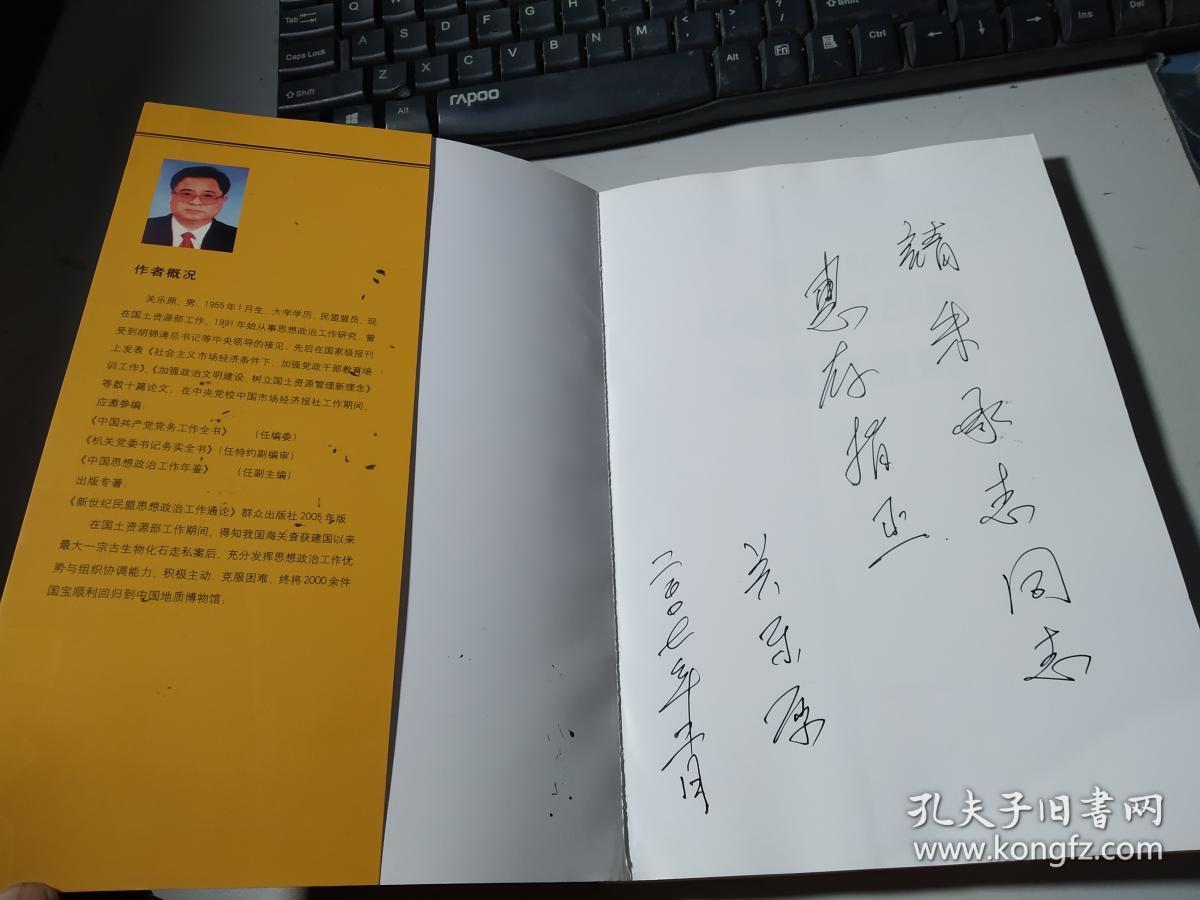 Tab
Q
W
E
R
T
Y
Caps Lock
A
S
D
F
G
H
J
K
L
Shift
Z
X
C
V
B
N
M
Alt
rapoo
Alt
Fn
Ctrl
Shift
Ins
Del
作者概况
关乐原、男、1955年1月生、大学学历、民盟盟员、现
在国土资源部工作。1991年始从事思想政治工作研究、曾
受到胡锦涛总书记等中央领导的接见、先后在国家级报刊
上发表《社会主义市场经济条件下、加强党政干部教育培
训工作》、《加强政治文明建设、树立国土资源管理新理念》
等数十篇论文；在中央党校中国市场经济报社工作期间、
应邀参编：
《中国共产党党务工作全书》 （任编委）
《机关党委书记务实全书》（任特约副编审）
《中国思想政治工作年鉴》 （任副主编）
出版专著：
《新世纪民盟思想政治工作通论》群众出版社2005年版
在国土资源部工作期间，得知我国海关查获建国以来
最大一宗古生物化石走私案后，充分发挥思想政治工作优
势与组织协调能力，积极主动、克服困难、终将2000余件
国宝顺利回归到中国地质博物馆。
請朱承志同志
惠存指正
关乐原
二〇〇七年
月
孔夫子旧书网
www.kongfz.com